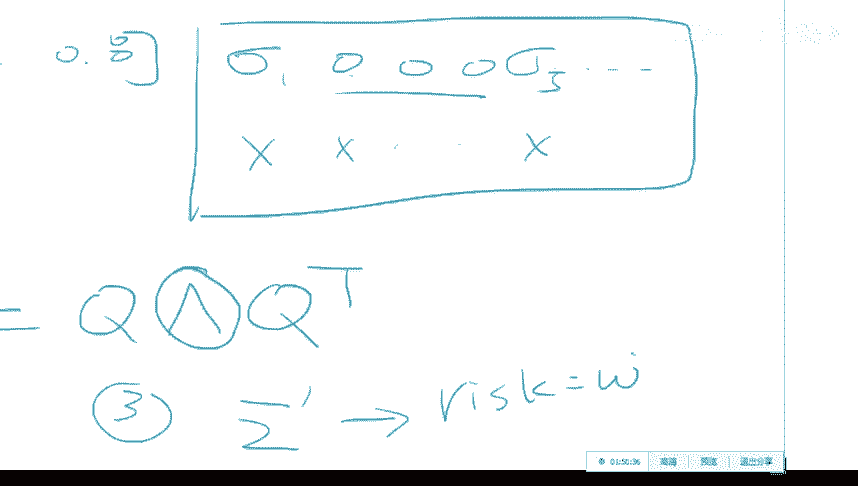 0. 0/0]
σ₁ 0 0 0 σ₅ ---
X X . . X
= Q Λ Qᵀ
③ Σ' → risk = w'
01:50:36